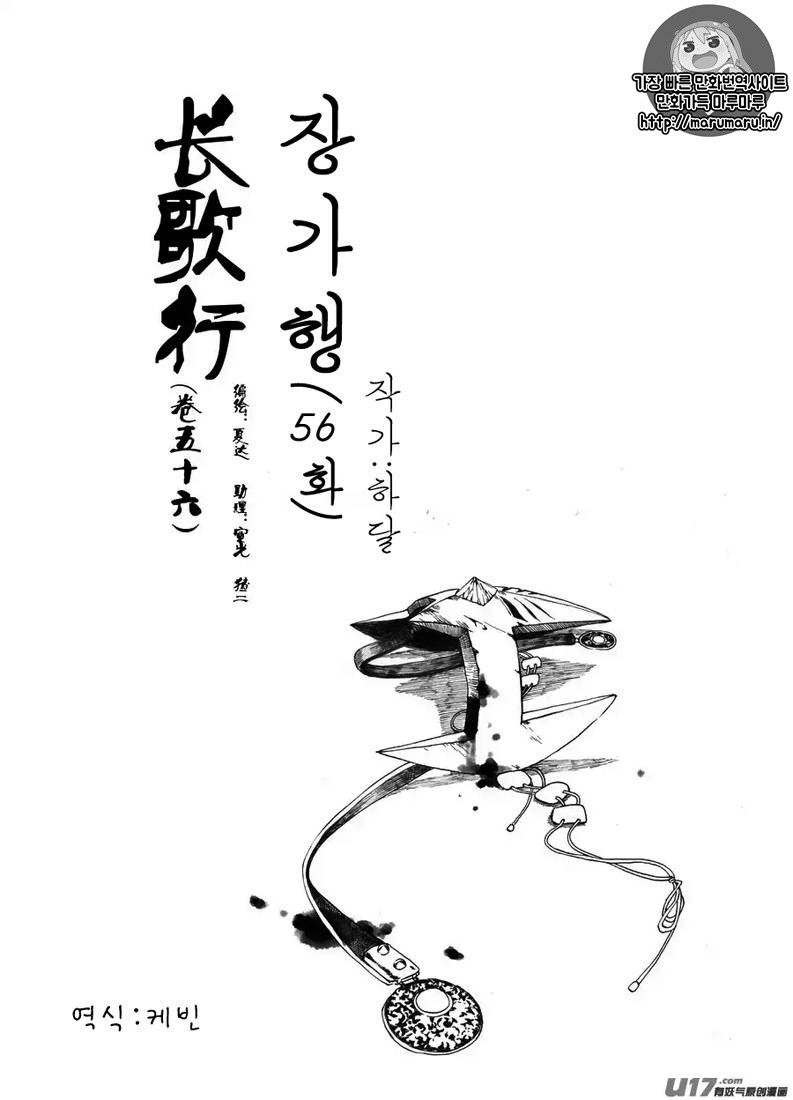 가장 빠른 만화번역사이트
만화가득 마루마루
http://marumaru.in/
장가행(56화)
작가:하달
长歌行
(卷五十六)
编绘:夏达 助理:
역식:케빈
U17.com
有妖气原创漫画